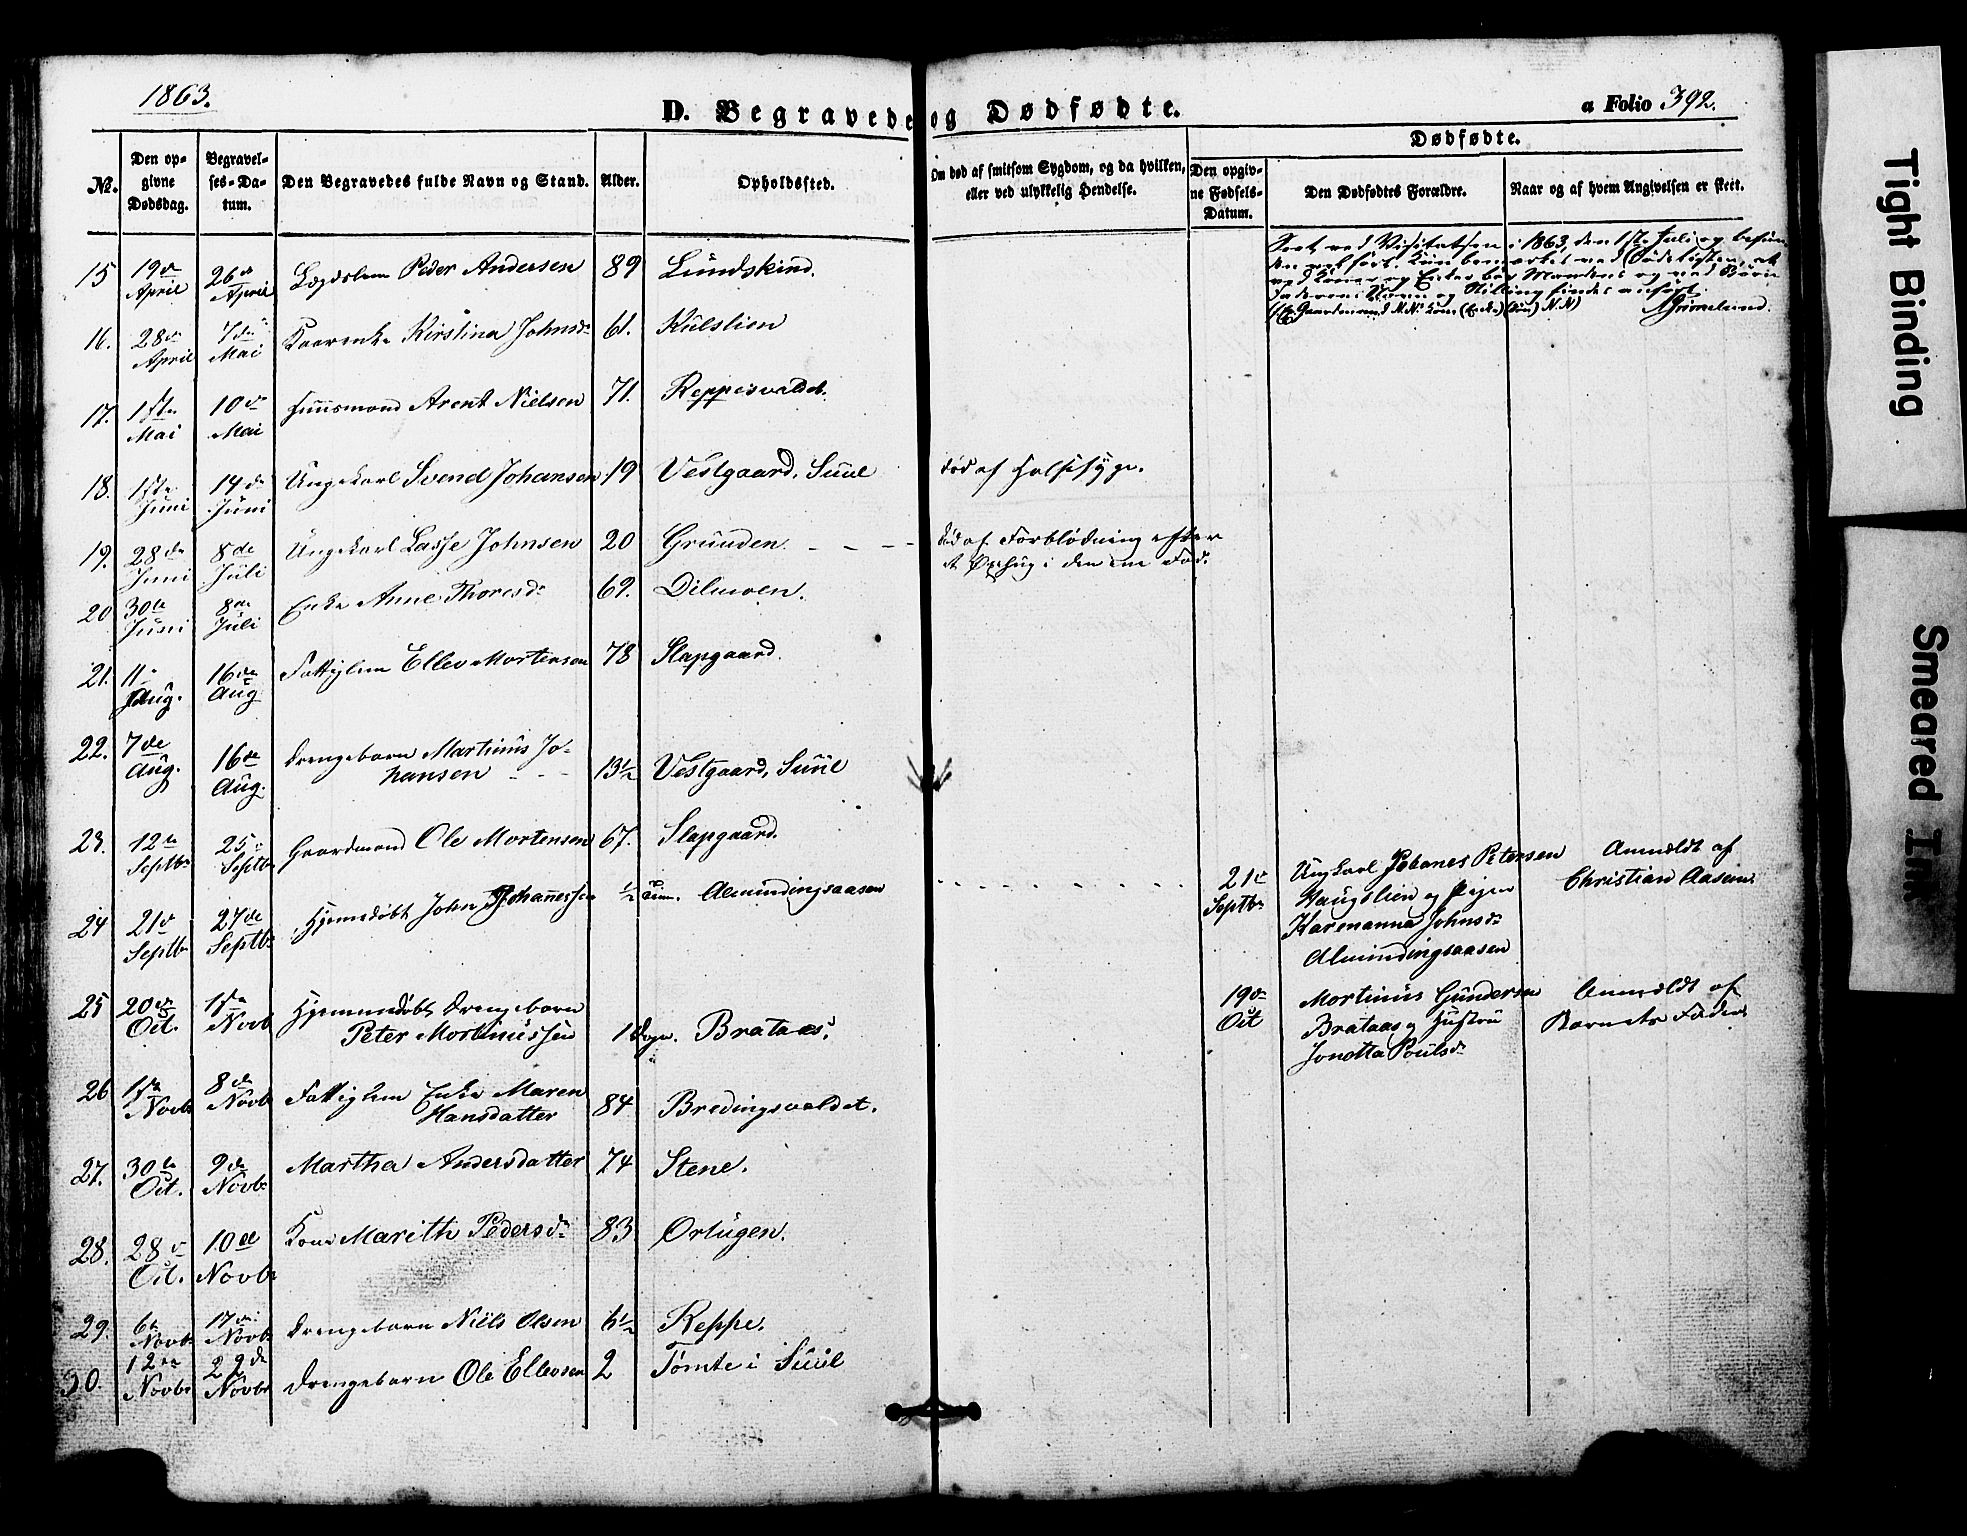 1863.
D. Begravede og Dødfødte.
a Folio 392.
Dødfødte.
№.
Den opgivne Dødsdag.
Begravelses-Datum.
Den Begravedes fulde Navn og Stand.
Alder.
Opholdssted.
Om død af smitsom Sygdom, og da hvilken,
eller ved ulykkelig Hendelse.
Den opgivne Fødsels-Datum.
Den Dødfødtes Forældre.
Naar og af hvem Angivelsen er skeet.
Seet ved Visitatsen i 1863, den 17. Juli og befun-
15 19de April 26de April Lægdslem Peder Andersen 89 Lundskind.
16. 28de April 7de Mai Kaarenke Kirstina Johnsdr 61. Kulslien
17. 1ste Mai 10de Mai Huusmand Arent Nielsen 71. Reppesvaldet.
18. 1ste Juni 14de Juni Ungekarl Svend Johansen 19 Vestgaard, Suul død af Halssyge.
19. 28de Juni 8de Juli Ungekarl Lasse Johnsen 20 Grunden død af Forblødning efter
et Øxehug i den ene Fod.
20 30te Juni 8de Juli Enke Anne Thoresdr 69. Dilmoen.
21. 11 Aug. 16de Aug Fattiglem Ellev Mortensen 78 Slapgaard.
22. 7de Aug. 16de Aug. Drengebarn Martinus Jo-
hansen 13½ Vestgaard, Suul
23. 12te Septbr 25de Septbr Gaardmand Ole Mortensen 67. Slapgaard.
24 21de Septbr 27de Septbr Hjemmedøbt John Johannessen ½ Tim. Almindingsaasen
21de Septbr Ungkarl Johanes Petersen
Haugslien og Pigen
Karenanna Johnsdr
Almindingsaasen
Anmeldt af
Christian Aasen.
25 20de Oct. 1ste Novb Hjemmedøbt Drengebarn
Peter Mortinussen 1 Døgn. Brataas.
19de Oct Mortinus Gundersen
Brataas og Hustru
Jonetta Poulsdr
Anmeldt af
Barnets Fader
26 1ste Novbr 8de Novbr Fattiglem Enke Maren
Hansdatter 84 Bredingsvaldet.
27. 30te Oct. 9de Novbr Martha Andersdatter 74 Stene.
28. 28de Oct. 10de Novbr Kone Marith Pedersdr 83 Ortugen.
29. 6te Novbr 17de Novbr Drengebarn Niels Olsen 6½ Reppe.
30. 12te Novbr 22de Novbr Drengebarn Ole Ellevsen 2 Tømte i Suul
Tight Binding
Smeared Ink